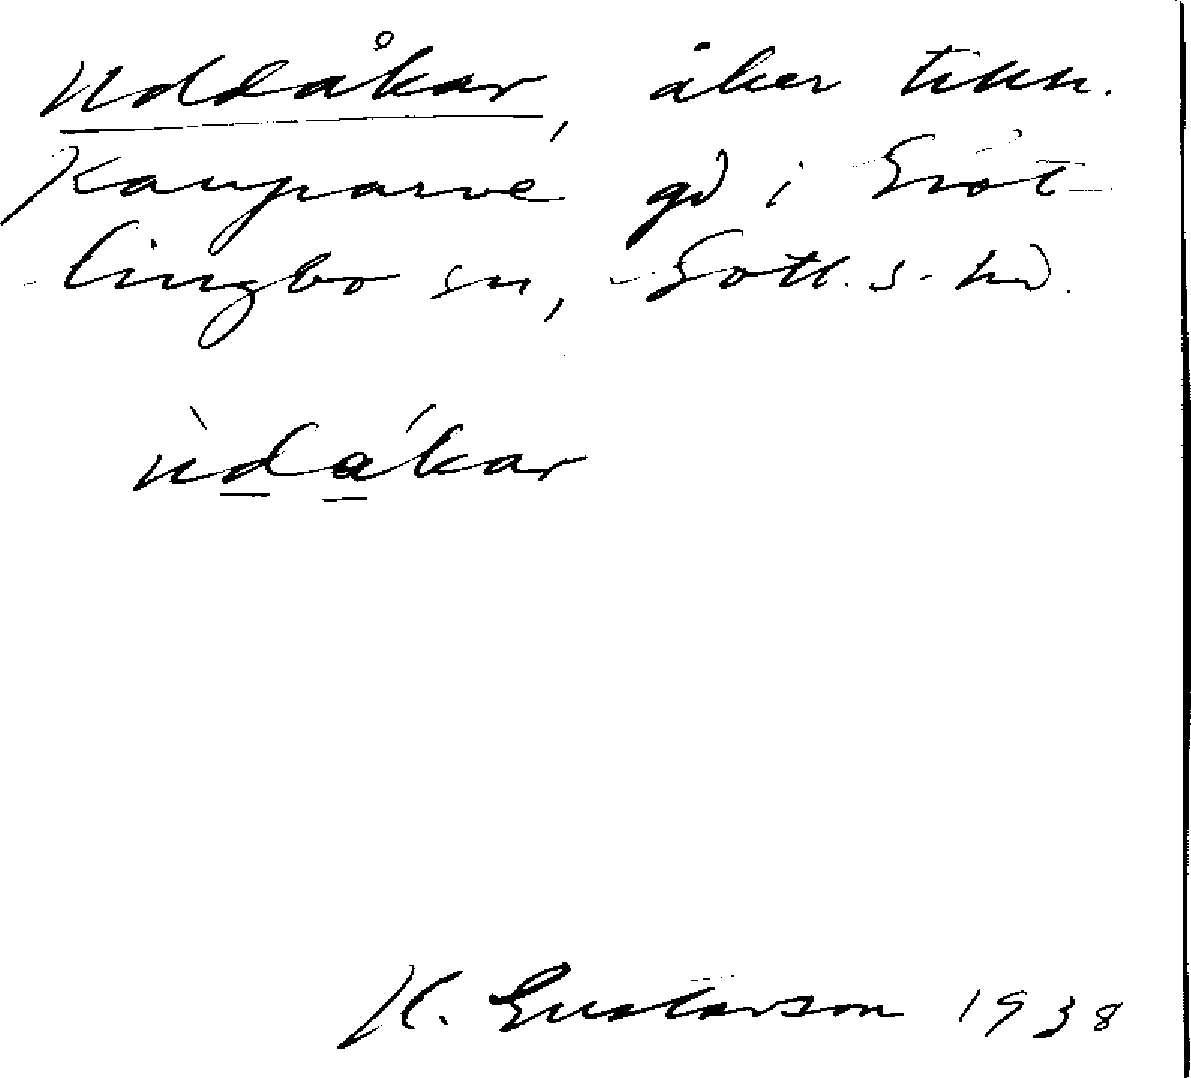 Uddåkar, åker tillh.
Kauparve gd i Gröt-
lingbo sn, Gotl. s. hd.
ùdákar
H. Gustavson 1938